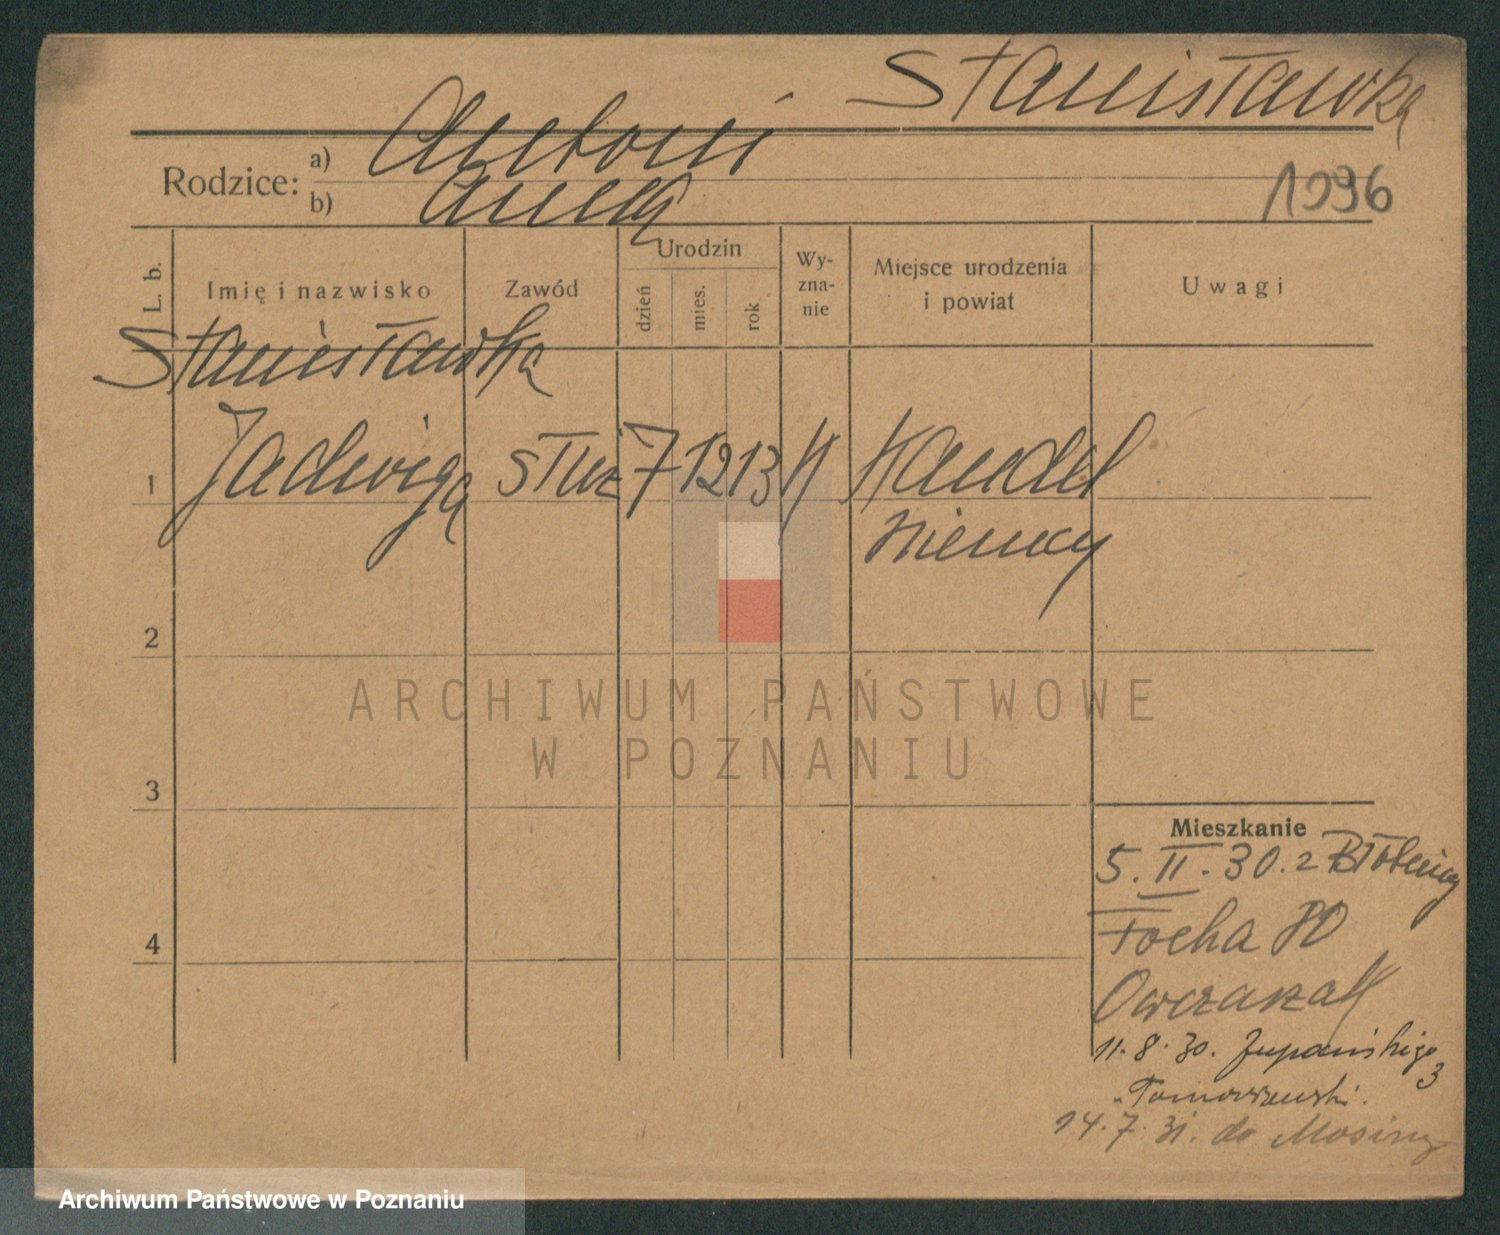 Stanisławska
Rodzice: a) Antoni
b) Anna
1996
L. b.
Imię i nazwisko
Zawód
Urodzin
dzień
mies.
rok
Wy-
zna-
nie
Miejsce urodzenia
i powiat
Uwagi
Stanisławska
1 Jadwiga służ 7 12 13 Handel
Niemcy
2
3
4
Mieszkanie
5. II. 30. z
Focha 80
Owczarzak
11. 8. 30. Żupańskiego
3
14. 7. 31. do Mosiny
ARCHIWUM PAŃSTWOWE
W POZNANIU
Archiwum Państwowe w Poznaniu